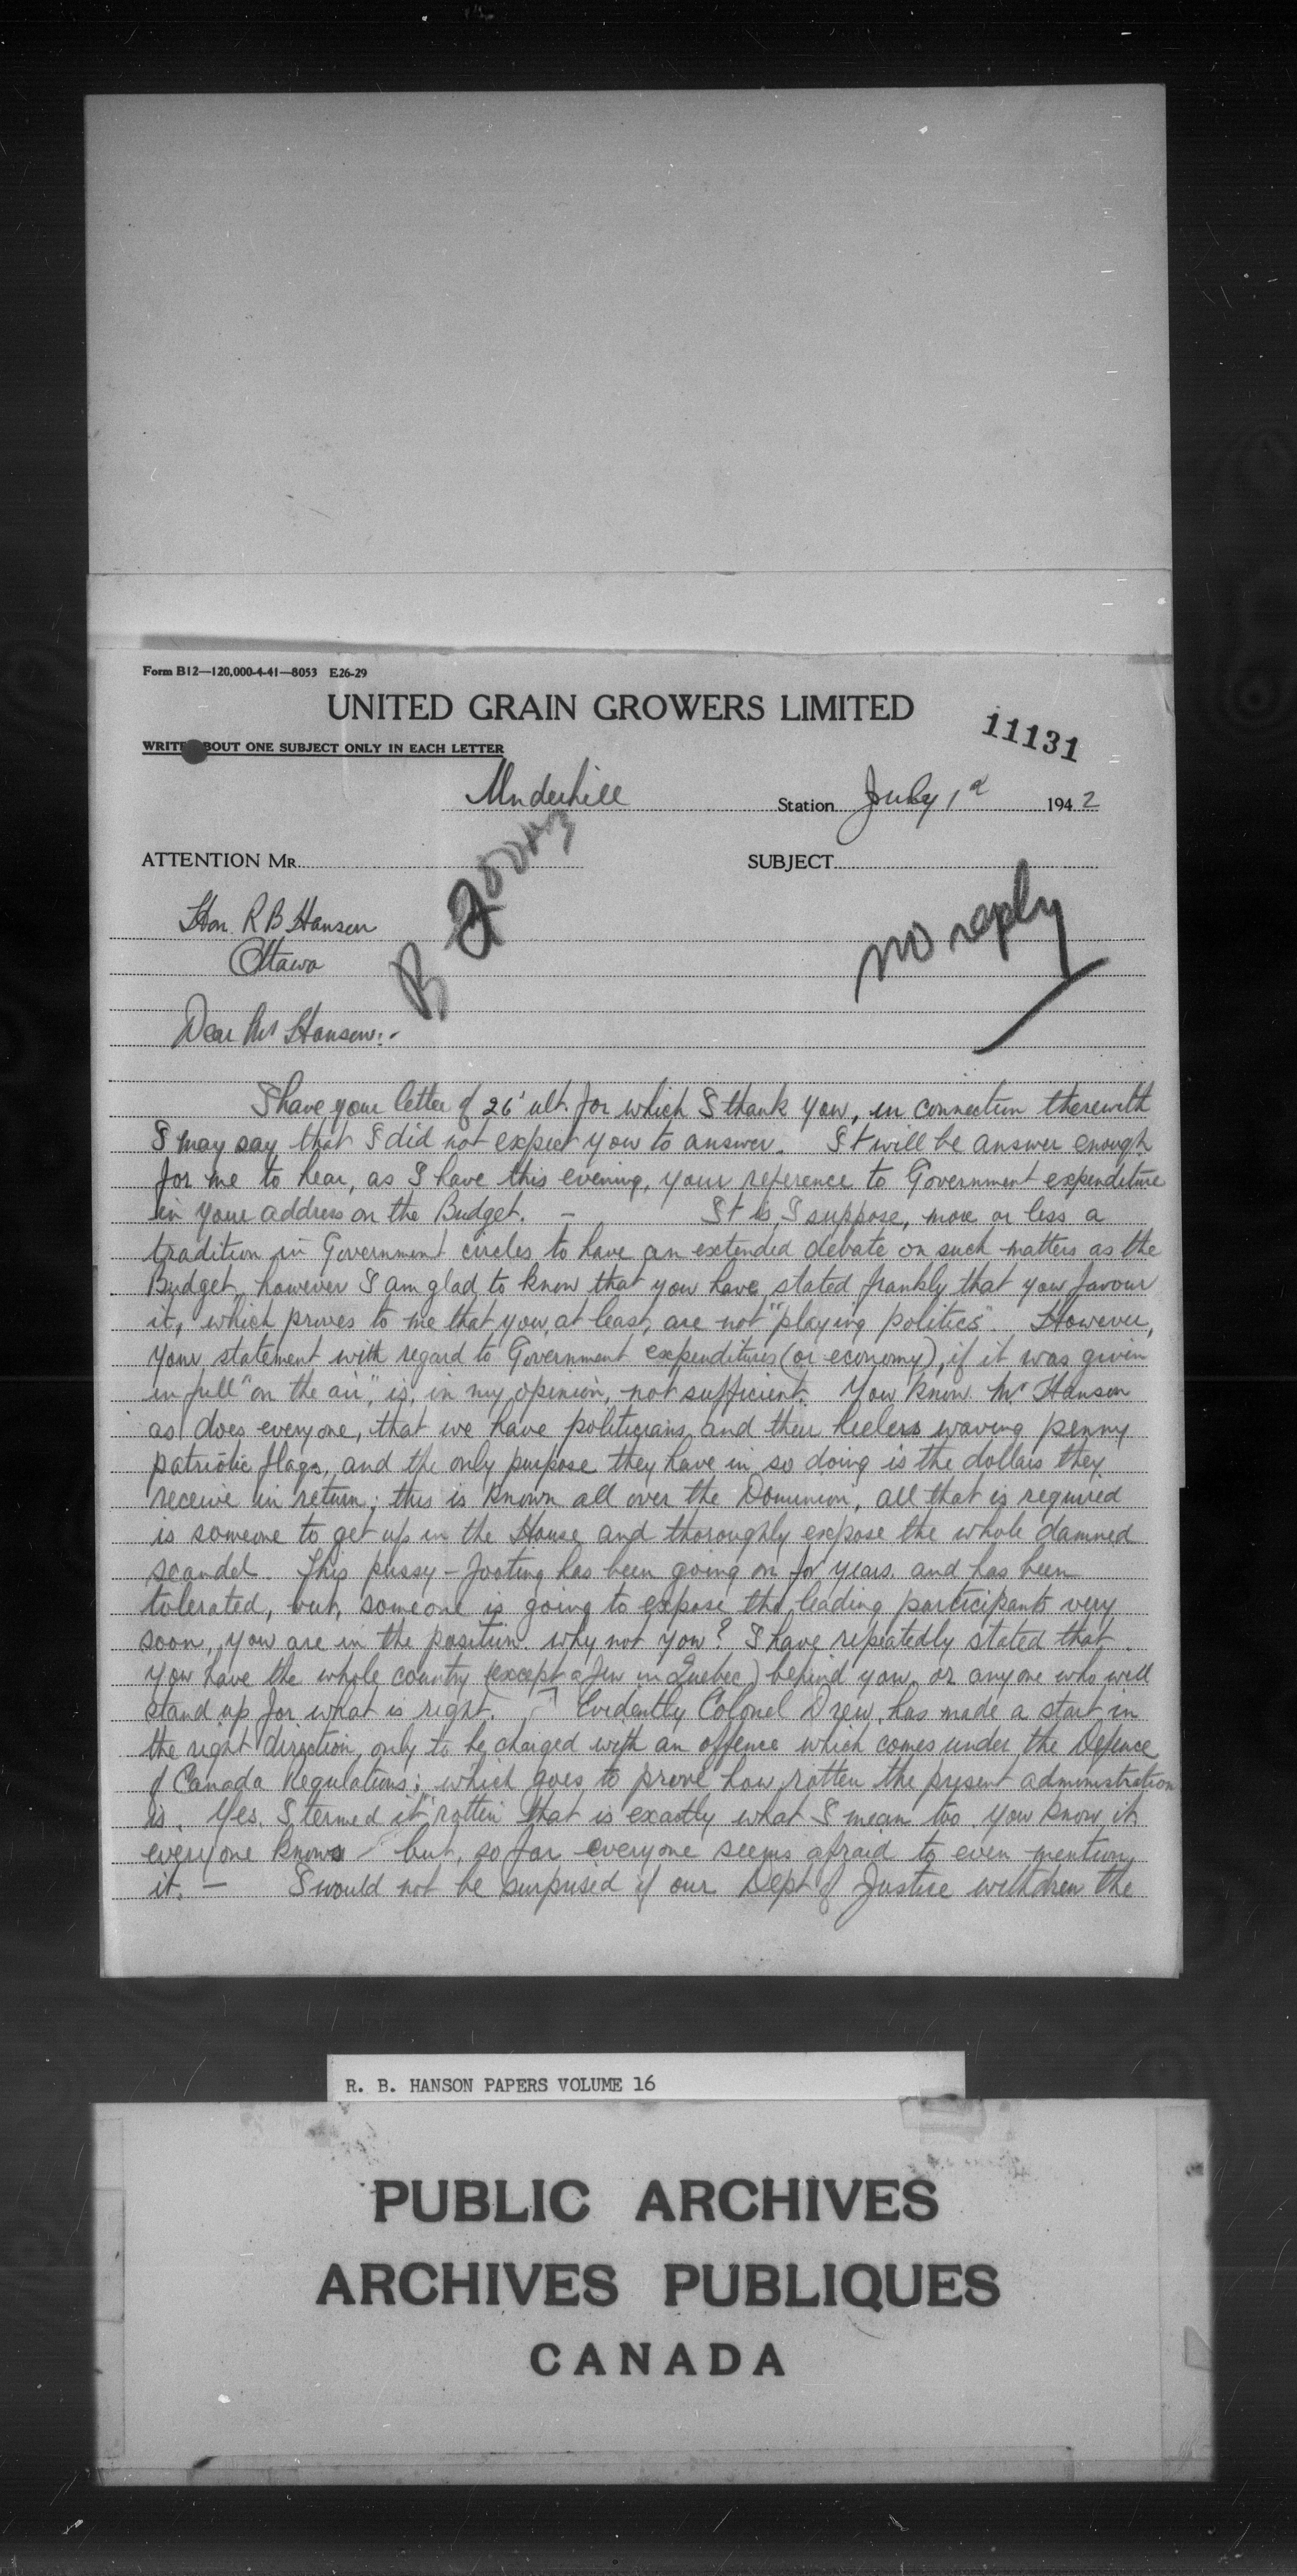 Form B12—120,000-4-41—8053 E26-29
UNITED GRAIN GROWERS LIMITED
11131
WRITE BOUT ONE SUBJECT ONLY IN EACH LETTER
Underhill Station July 1st 1942
ATTENTION MR. SUBJECT
Hon. R B Hanson
Ottawa
no reply
Dear Mr Hanson:-
I have your letter of 26' ult. for which I thank you, in connection therewith
I may say that I did not expect you to answer. It will be answer enough
for me to hear, as I have this evening, your reference to Government expenditure
in your address on the Budget. - It is, I suppose, more or less a
tradition in Government circles to have an extended debate on such matters as the
Budget, however I am glad to know that you have stated frankly that you favour
it, which proves to me that you, at least, are not "playing politics". However,
your statement with regard to Government expenditures (or economy), if it was given
in full "on the air", is, in my opinion, not sufficient. You know Mr Hanson
as does everyone, that we have politicians and their heelers waving penny
patriotic flags, and the only purpose they have in so doing is the dollars they
receive in return; this is known all over the Dominion, all that is required
is someone to get up in the House and thoroughly expose the whole damned
scandal. This pussy-footing has been going on for years and has been
tolerated, but, someone is going to expose the leading participants very
soon, you are in the position why not you? I have repeatedly stated that
you have the whole country (except a few in Quebec) behind you, or anyone who will
stand up for what is right. - Evidently Colonel Drew has made a start in
the right direction, only to be charged with an offence which comes under the Defence
of Canada Regulations; which goes to prove how rotten the present administration
is. Yes, I termed it "rotten" that is exactly what I mean too. You know it,
everyone knows - but, so far everyone seems afraid to even mention
it. - I would not be surprised if our Dept of Justice withdrew the
R. B. HANSON PAPERS VOLUME 16
PUBLIC ARCHIVES
ARCHIVES PUBLIQUES
CANADA